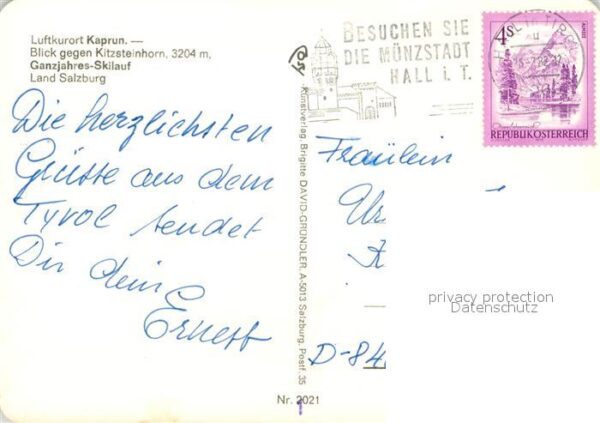 Luftkurort Kaprun. —
Blick gegen Kitzsteinhorn, 3204 m,
Ganzjahres-Skilauf
Land Salzburg
BESUCHEN SIE
DIE MÜNZSTADT
HALL i. T.
4S
REPUBLIK ÖSTERREICH
Die herzlichsten
Grüsse aus dem
Tyrol sendet
Dir dein
Ernest
Kunstverlag Brigitte DAVID-GRÜNDLER, A-5013 Salzburg, Postf. 35
Fräulein
Ur
D-84
privacy protection
Datenschutz
Nr. 2021
1